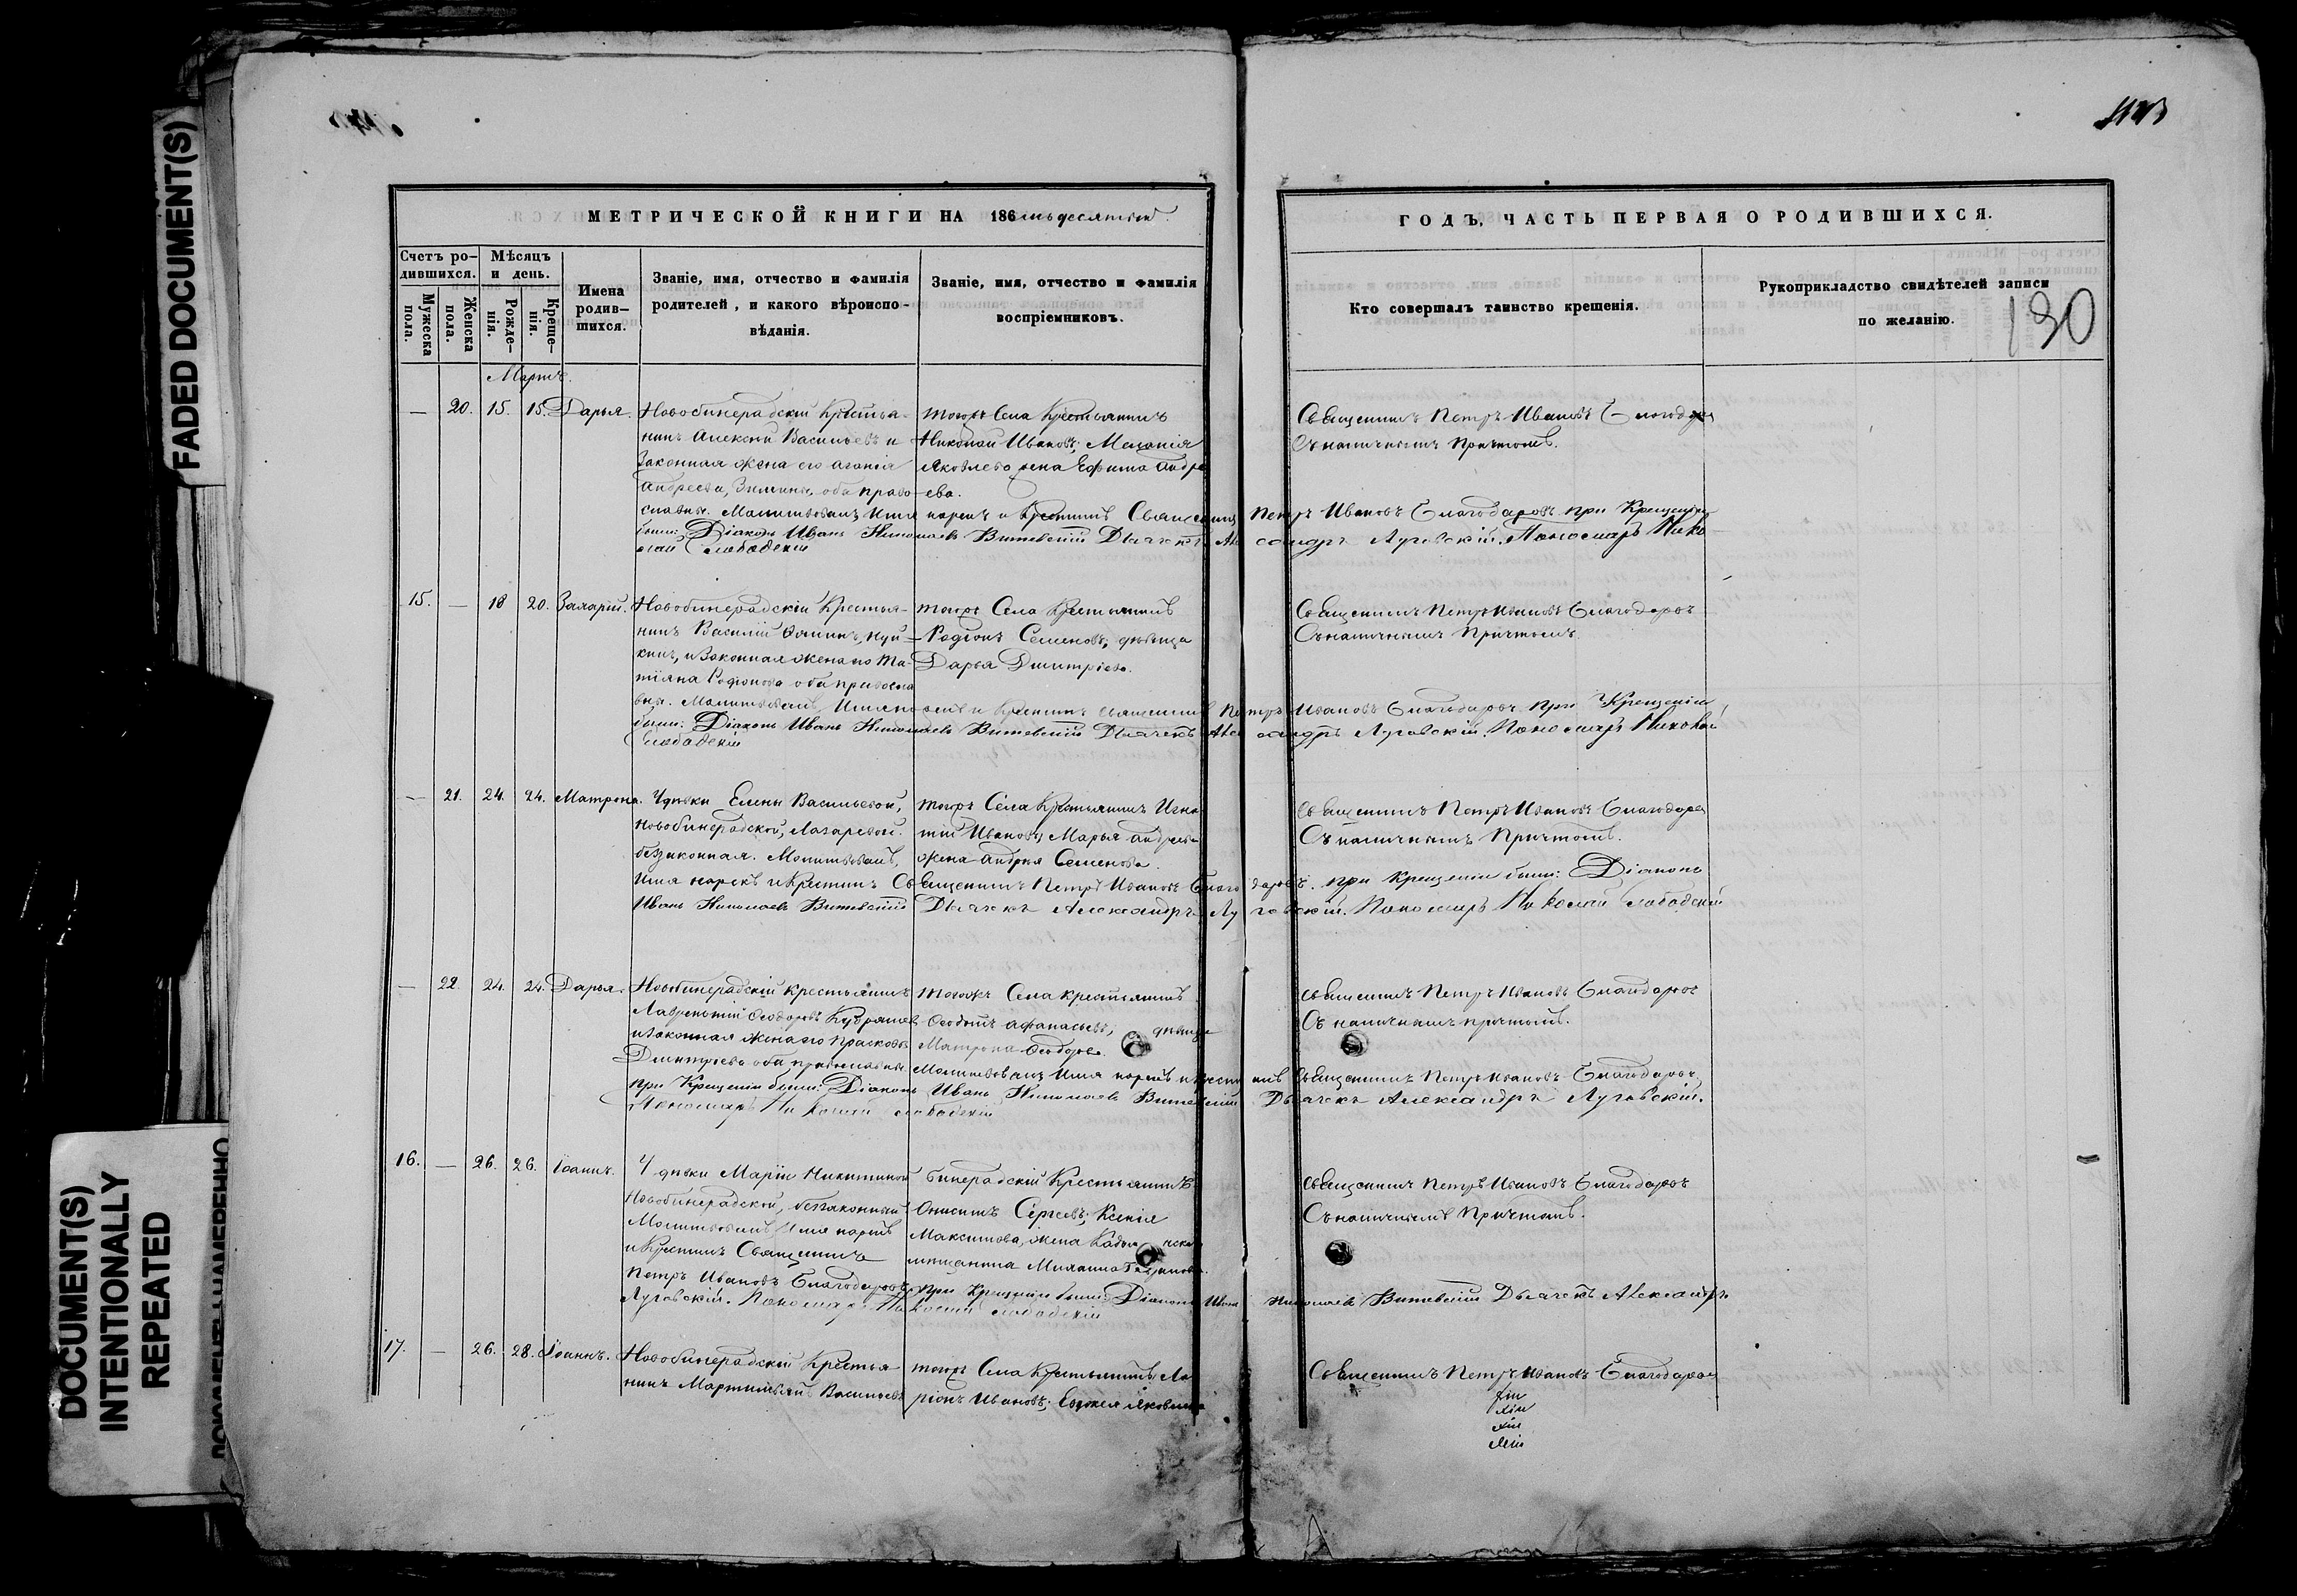 FADED DOCUMENT(S)
DOCUMENT(S)
INTENTIONALLY
REPEATED
МЕТРИЧЕСКОЙ КНИГИ НА 186
Счетъ ро-
дившихся.
Мужеска
пола.
Женска
пола.
Мѣсяцъ
и день.
Рожде-
нія.
Креще-
нія.
Имена
родив-
шихся.
Званіе, имя, отчество и фамилія
родителей, и какого вѣроиспо-
вѣданія.
Званіе, имя, отчество и фамилія
воспріемниковъ.
ГОДЪ, ЧАСТЬ ПЕРВАЯ О РОДИВШИХСЯ.
Кто совершалъ таинство крещенія.
Рукоприкладство свидѣтелей записи
по желанію.
130
Мартъ.
— 20. 15. 15. Дарья.
Новобинерадскій Крестья-
нинъ Алексѣй Васильевъ и
Законная жена его Агапія
Андреева, оба право-
славные. Молитвовалъ Имя нарекъ и Крестилъ Священникъ Петръ Ивановъ Благодаровъ при Крещеніи
были: Діаконъ Иванъ Николаевъ Витевскій Дьячекъ Александръ Луговскій. Пономарь Нико-
лай Слободскій
тогожъ Села Крестьянинъ
Николай Ивановъ; Меланія
Яковлева жена Ефима Андре-
ева.
Священникъ Петръ Ивановъ Благодаровъ
Съ наличнымъ Причтомъ.
15. — 18 20. Захарій.
Новобинерадскій Крестья-
нинъ Василій Ѳоминъ,
кинъ, и Законная жена его Та-
тіяна Родіонова оба правосла-
вные. Молитвовалъ Имя нарекъ и Крестилъ Священникъ Петръ Ивановъ Благодаровъ при Крещеніи
были: Діаконъ Иванъ Николаевъ Витевскій Дьячекъ Александръ Луговскій. Пономарь Николай
Слободскій
тогожъ Села Крестьянинъ
Родіонъ Семеновъ; дѣвица
Дарья Дмитріева.
Священникъ Петръ Ивановъ Благодаровъ
Съ наличнымъ Причтомъ.
— 21. 24. 24. Матрона.
У дѣвки Елены Васильевой,
Новобинерадской, Лазаревой.
беззаконная. Молитвовалъ,
Имя нарекъ и Крестилъ Священникъ Петръ Ивановъ Благодаровъ. при Крещеніи были: Діаконъ
Иванъ Николаевъ Витевскій Дьячекъ Александръ Луговскій. Пономарь Николай Слободскій
тогожъ Села Крестьянинъ Игна-
тій Ивановъ, Марья Андреева
жена Андрея Семенова.
Священникъ Петръ Ивановъ Благодаровъ
Съ наличнымъ Причтомъ.
— 22. 24. 24. Дарья.
Новобинерадскій крестьянинъ
Лаврентій Ѳеодоровъ
и Законная жена его Прасковья
Дмитріева оба православные. Молитвовалъ Имя нарекъ и крестилъ Священникъ Петръ Ивановъ Благодаровъ,
при Крещеніи были: Діаконъ Иванъ Николаевъ Витевскій Дьячекъ Александръ Луговскій.
Пономарь Николай Слободскій
тогожъ Села крестьянинъ
Ѳеодотъ Афанасьевъ; дѣвица
Матрона Ѳеодорова.
Священникъ Петръ Ивановъ Благодаровъ
Съ наличнымъ причтомъ.
16. — 26. 26. Іоаннъ.
У дѣвки Маріи Никитиной
Новобинерадской, беззаконный
Молитвовалъ Имя нарекъ
и Крестилъ Священникъ
Петръ Ивановъ Благодаровъ, при Крещеніи были: Діаконъ Иванъ Николаевъ Витевскій Дьячекъ Александръ
Луговскій. Пономарь Николай Слободскій
Бинерадскій Крестьянинъ
Онисимъ Сергеевъ; Ксенія
Максимова, жена
мѣщанина
Священникъ Петръ Ивановъ Благодаровъ
Съ наличнымъ Причтомъ.
17. — 26. 28. Іоаннъ.
Новобинерадскій Крестья-
нинъ Мартиніанъ Васильевъ
тогожъ Села Крестьянинъ Ла-
ріонъ Ивановъ; Евдокія Яковлева
Священникъ Петръ Ивановъ Благодаровъ